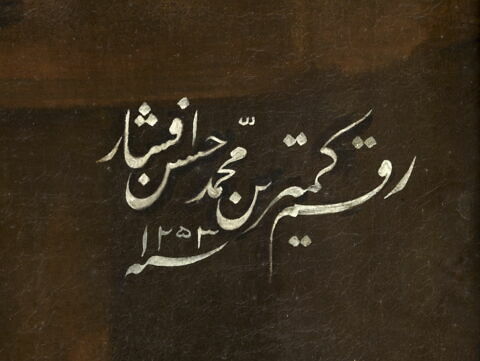 رقم کمترین محمد حسن افشار
سنه ۱۲۵۳